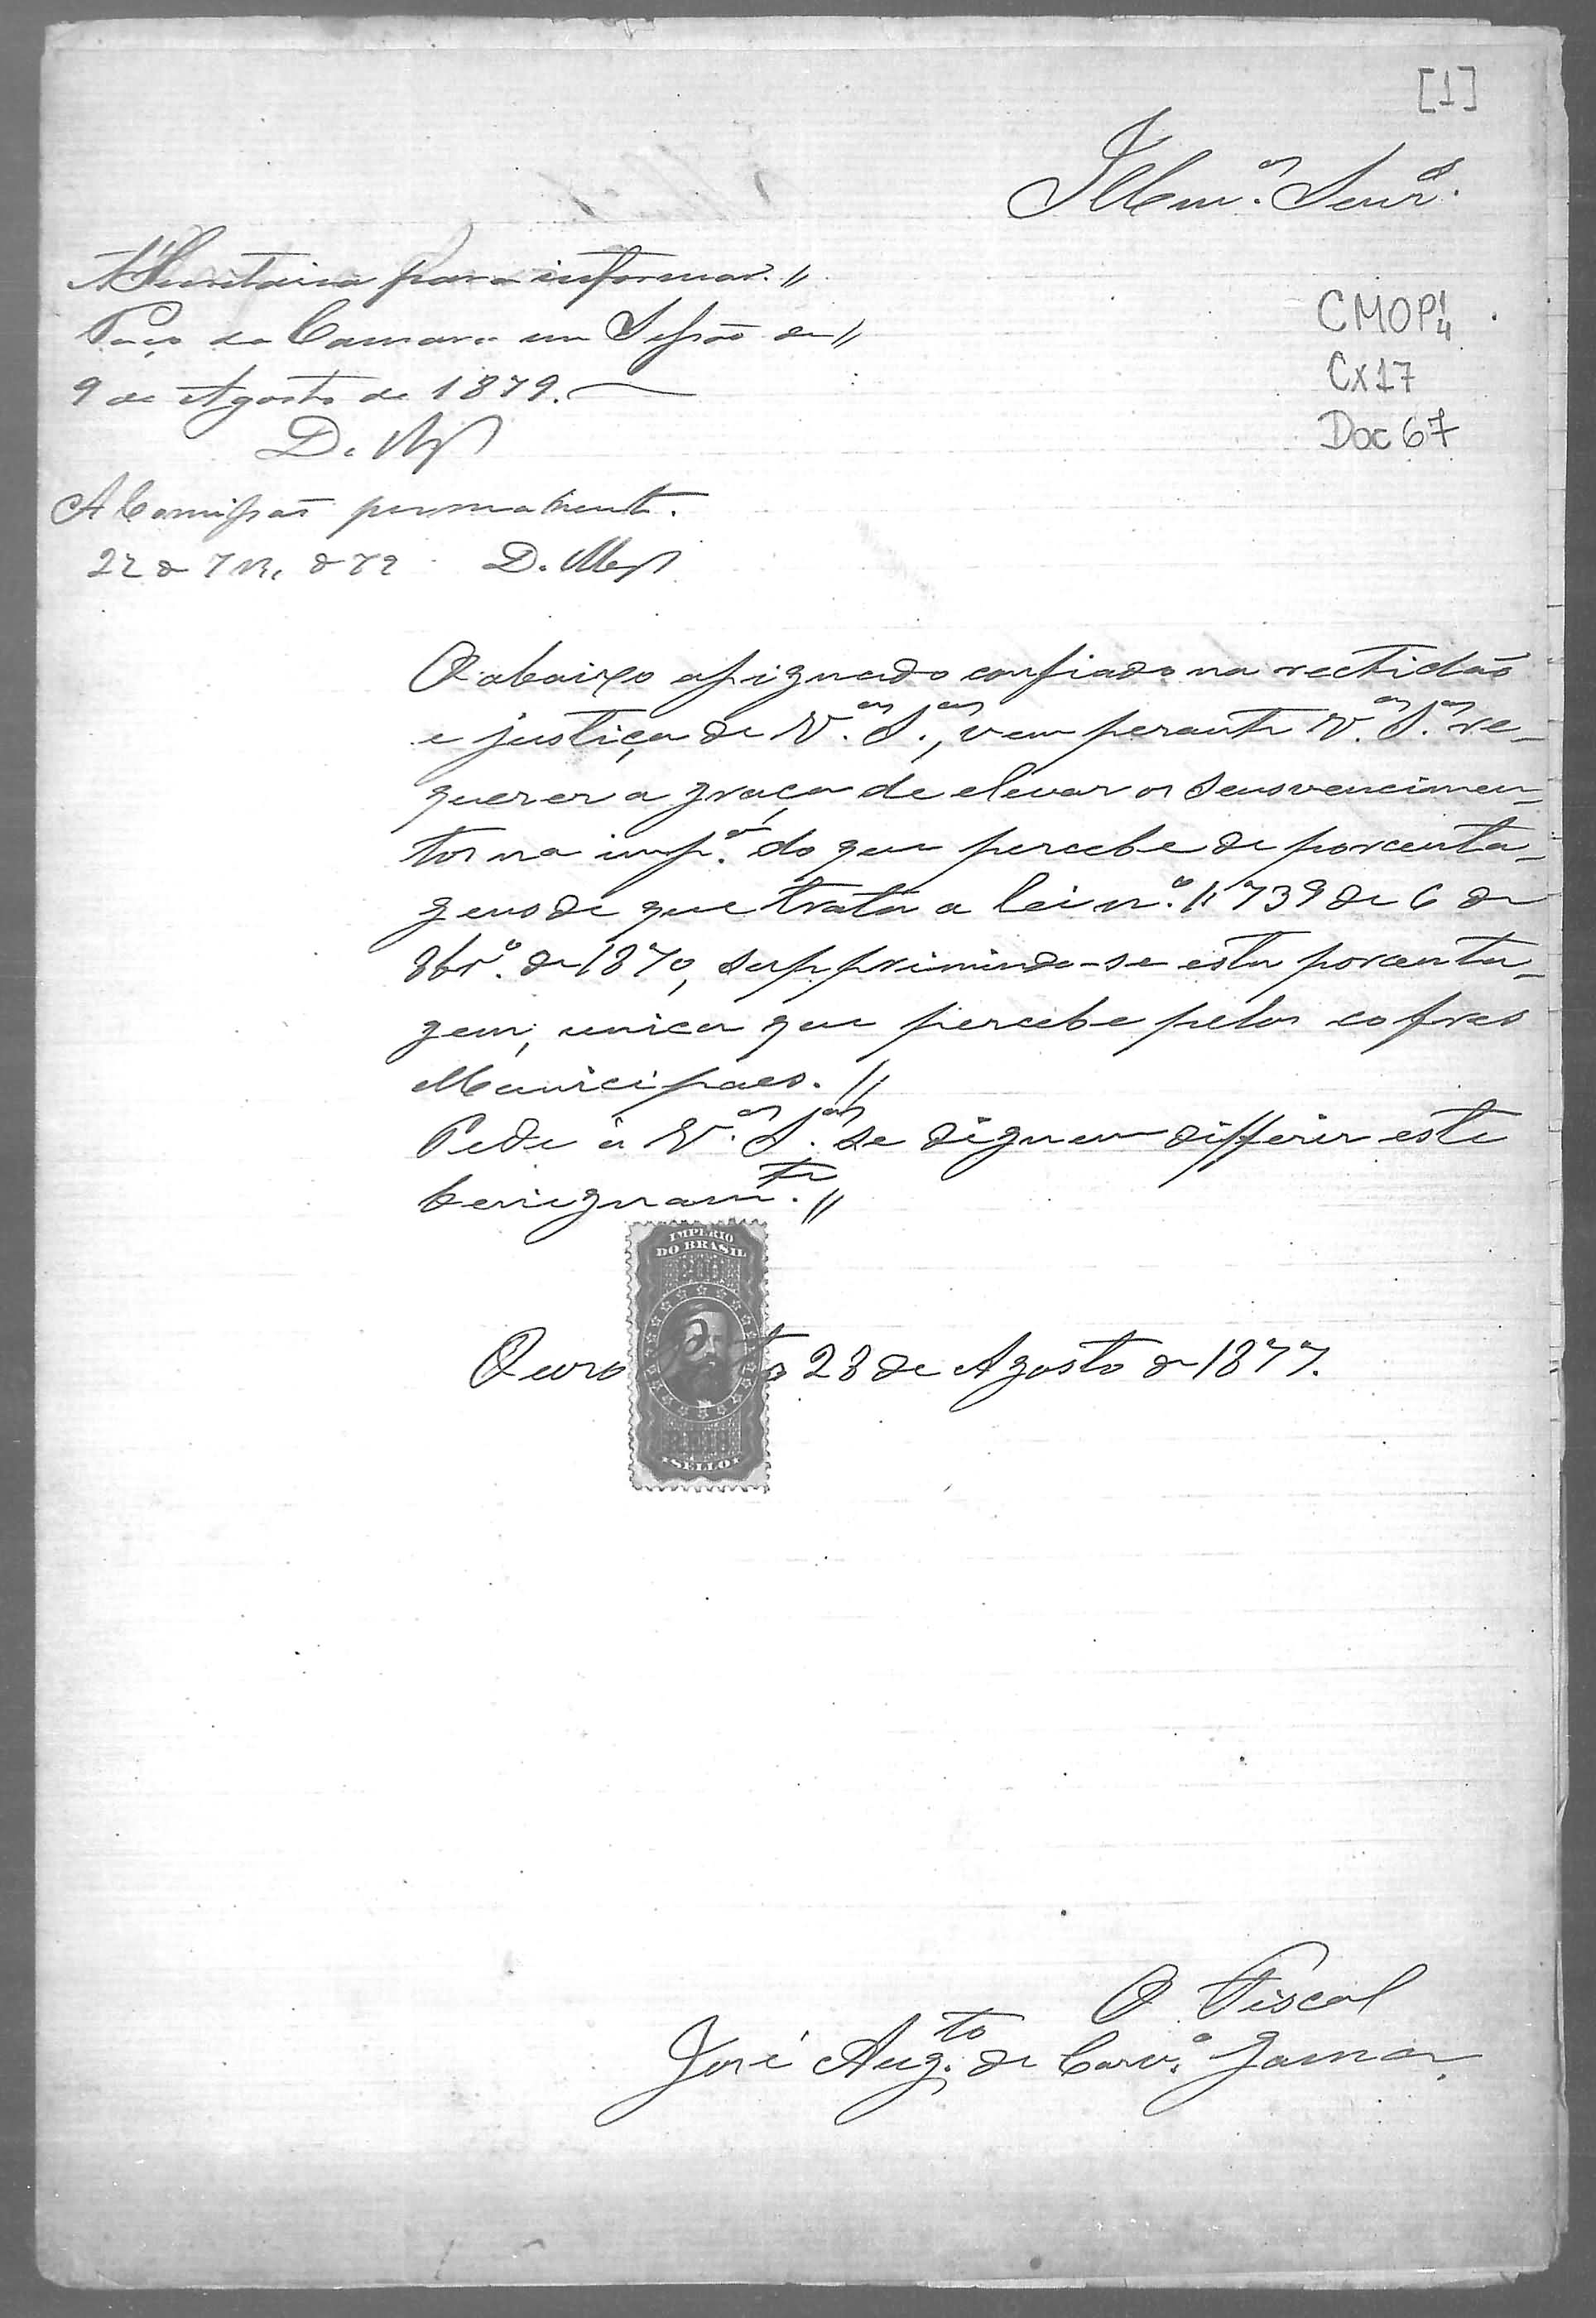 [1]
Illm.os Senr.s
A' Secretaria para informar. //
Paço da Camara em Sessão de //
9 de Agosto de 1879.
CMOP 1/4
Cx 17
Doc 67
A Comissão permanente.
22 de 7br. de 79 D.
O abaixo assignado confiado na rectidão
e justiça de V.as S.as, vem perante V.as S.as re-
querer a graça de elevar os seus vencimen-
tos na imp.a do que percebe de porcenta-
gens de que trata a lei n.o 1739 de 6 de
8br.o de 1870, supprimindo-se esta porcenta-
gem, unica que percebe pelos cofres
Municipaes. //
Pede á V.as S.as se dignem differir este
benignam.te. //
IMPERIO
DO BRASIL
SELLO
Ouro to 28 de Agosto de 1877.
O Fiscal
José Aug.to de Carv.o Gama